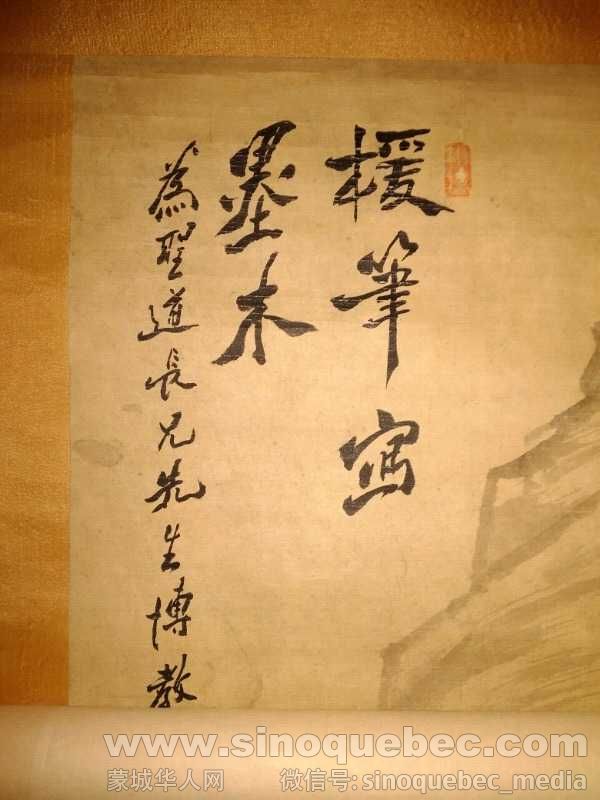 援筆寫
墨未
為聖道長兄先生博教
www.sinoquebec.com
蒙城华人网 微信号:sinoquebec_media